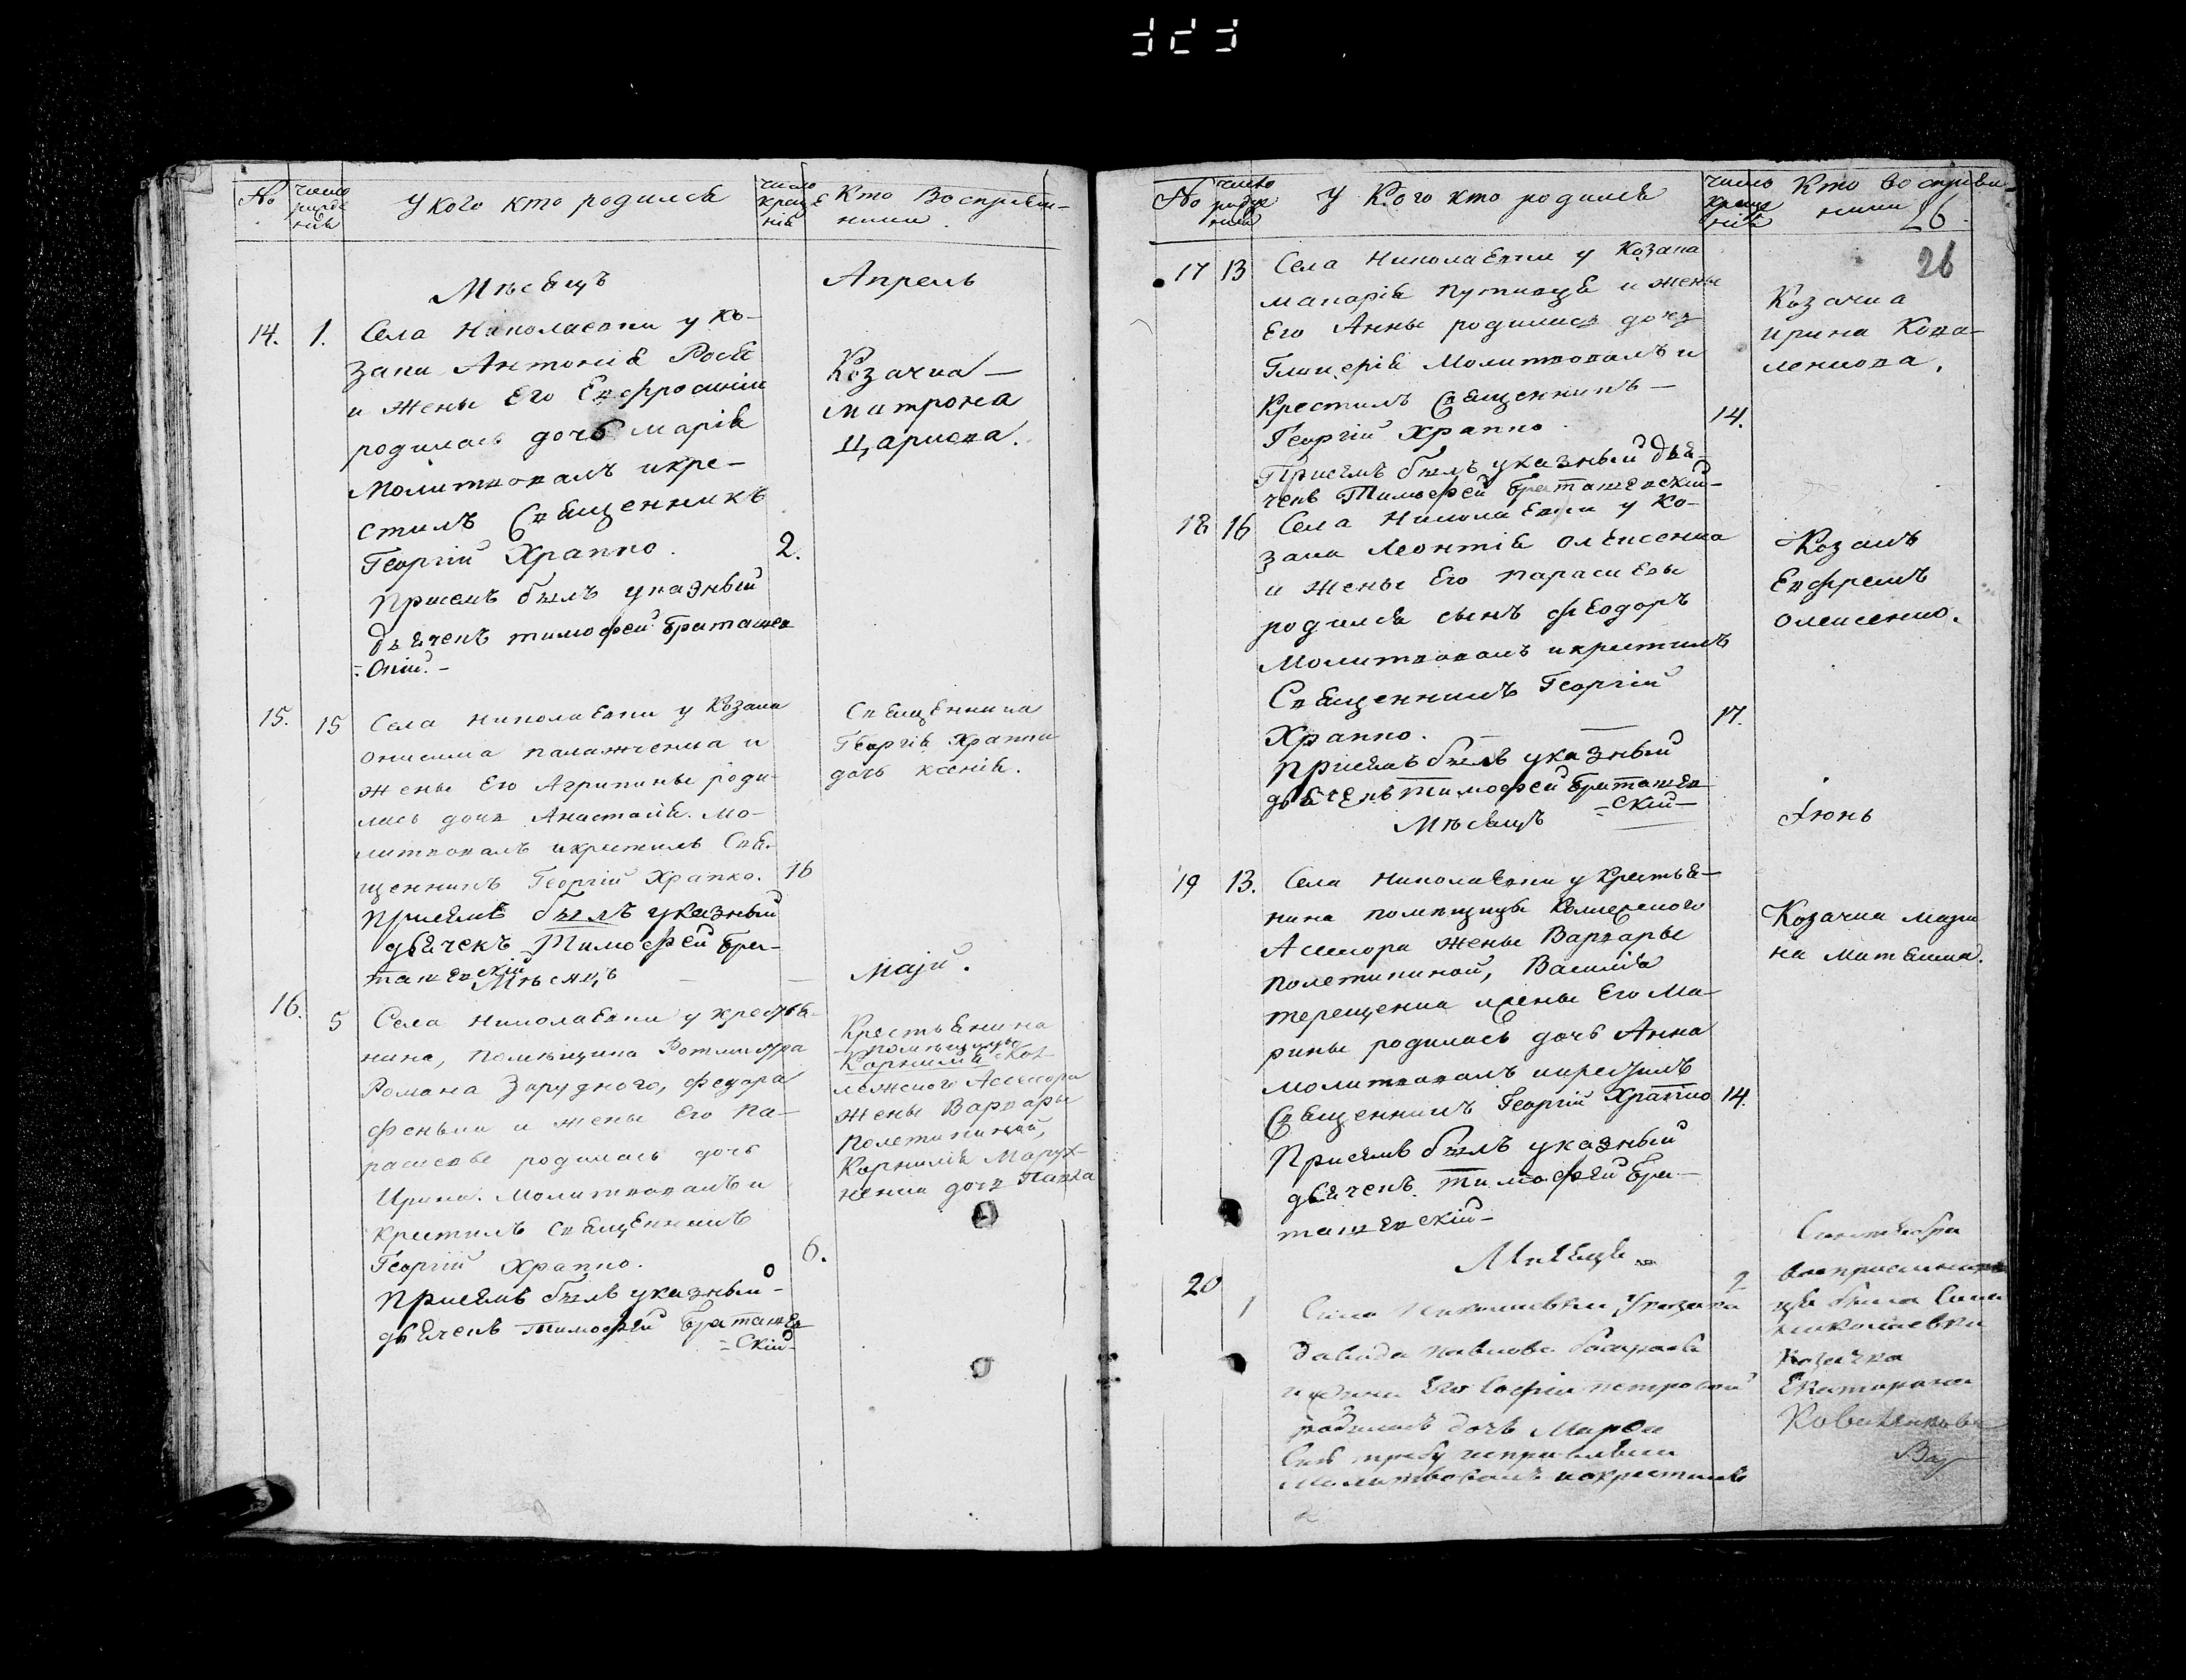 323
№ число рожде нія У кого кто родился число креще нія Кто Восприем-
ники
Мѣсяцъ Апрель
14. 1. Села Николаевки у Ко-
зака Антонія Рося
и жены Его Евфросиніи
родилась дочь Марія
Молитвовалъ икре-
стилъ Священникъ
Георгій Храпко. 2.
Присемъ былъ указный
дьячекъ тимофей Браташев
-скій.-
Козачка-
матрона
Царисва.
15. 15 Села Николаевки у Козака
онисима паламченка и
жены Его Агрипины роди-
лась дочь Анастасія. Мо-
литвовалъ икрестилъ Свя-
щенникъ Георгій Храпко. 16
присемъ былъ указный
дьячекъ Тимофей Бра-
ташевскій
Священника
Георгія Храпки
дочь ксенія.
Мѣсяцъ — маій.
16. 5 Села Николаевки у крестья-
нина, помѣщика Ротмистра
Романа Зарудного, федора
феньки и жены Его па-
раскевы родилась дочь
Ирина. Молитвовалъ и
крестилъ священникъ
Георгій Храпко. 6.
присемъ былъ указный-
дьячекъ тимофей Браташев
-скій-
Крестьянина
помѣщицы
Корнилія Кол-
лежского Асессора
жены Варвары
полетикиной,
Корнилія Марух-
ненка дочь Павла
№ число рожде нія У Кого кто родился число креще нія Кто восприем-
ники
26.
26
17 13 Села Николаевки у Козака
макарія путивця и жены
Его Анны родилась дочь
Гликерія Молитвовалъ и
Крестилъ Священникъ-
Георгій Храпко. 14.
Присемъ былъ указный дья-
чекъ Тимофей Браташевскій-
Козачка
ирина Кова-
ленкова.
18 16 Села Николаевки у Ко-
зака Леонтія олексенка
и жены Его параскевы
родился сынъ феодоръ
Молитвовалъ икрестилъ
Священникъ Георгій
Храпко. 17.
присемъ былъ указный
дьячекъ тимофей Браташев
-скій-
Козакъ
Евфремъ
олексенко.
Мѣсяцъ Іюнь
19 13. Села Николаевки у Крестья-
нина помѣщицы Коллежского
Асессора жены Варвары
полетикиной, Василія
терещенка и жены Его Ма-
рины родилась дочь Анна
молитвовалъ икрестилъ
Священникъ Георгій Храпко 14.
Присемъ былъ указный
дьячекъ тимофей Бра-
ташевскій-
Козачка мари
на
Мѣсяцъ Сентября
20 1 Села Николаевки У козака 2
Давида павлова
и жены Его Софіи петровой
родилась дочь Марфа
Сію требу исправлялъ
Молитвовалъ и окрестилъ
восприемни
ца была Села
николаевки
Козачка
Екатерина